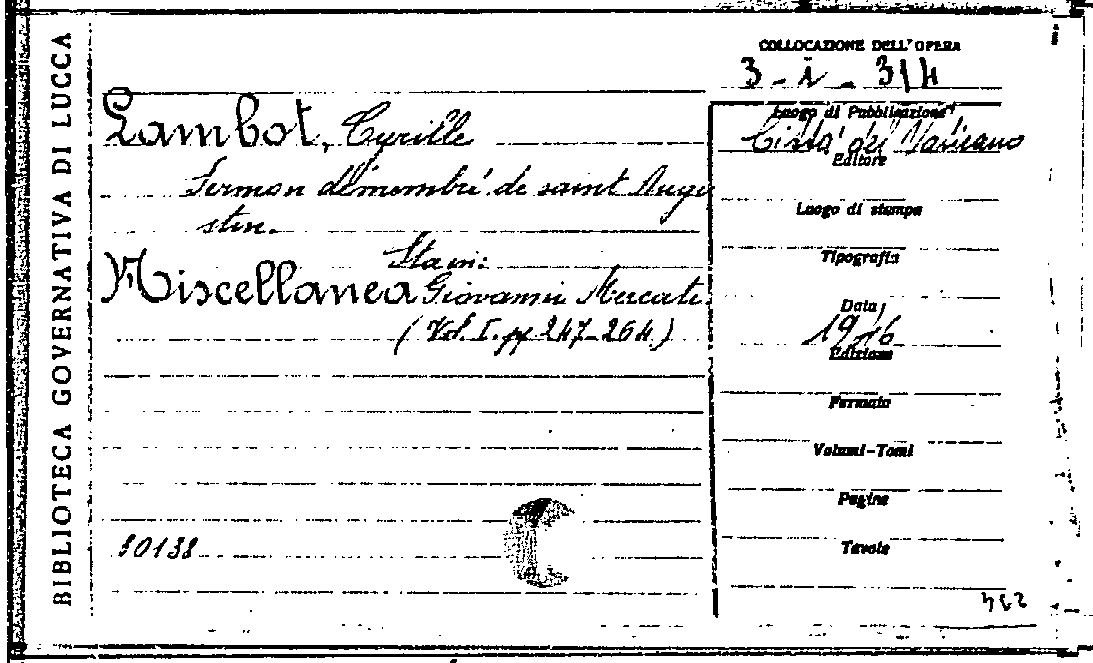 BIBLIOTECA GOVERNATIVA DI LUCCA
COLLOCAZIONE DELL'OPERA
3-i-314
Lambot, Cyrille
Sermon démembré de saint Augu
stin.
Sta in:
Miscellanea Giovanni Mercati.
(Vol. I. pp 247-264.)
30138
Luogo di Pubblicazione
Città del Vaticano
Editore
Luogo di stampa
Tipografia
Data
1946
Edizione
Formato
Volumi-Tomi
Pagine
Tavole